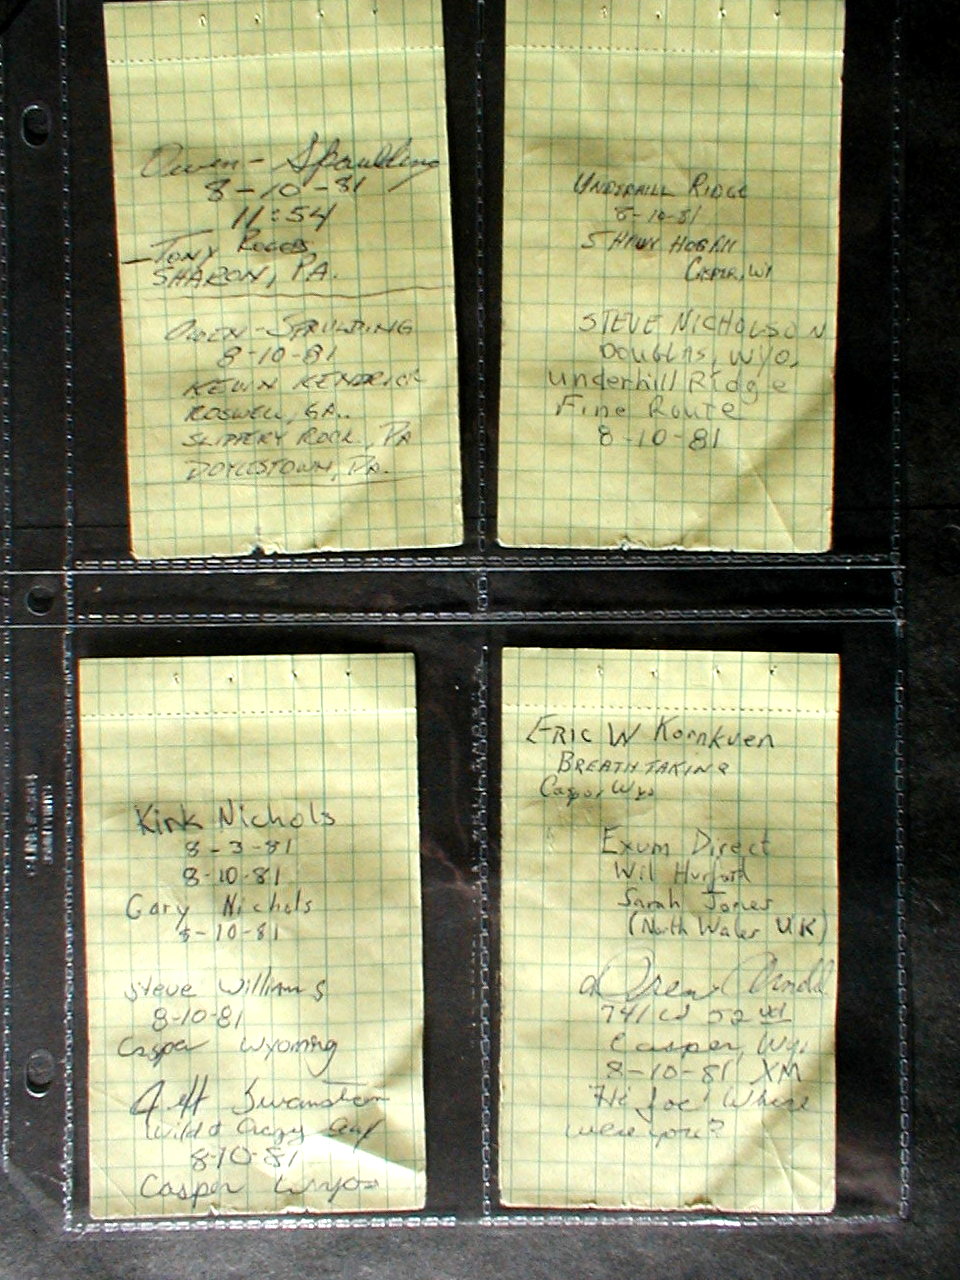 Owen - Spaulding
8-10-81
11:54
Tony
SHARON, PA.
OWEN-SPAULDING
8-10-81
KEVIN KENDRICK
ROSWELL, GA.
SLIPPERY ROCK, PA
DOYLESTOWN, PA.
UNDERHILL RIDGE
8-10-81
SHAWN HOGAN
CASPER, WY
STEVE NICHOLSON
DOUGLAS, WYO,
Underhill Ridge
Fine Route
8-10-81
Kirk Nichols
8-3-81
8-10-81
Gary Nichols
8-10-81
Steve Williams
8-10-81
Casper Wyoming
Jeff Swanstrom
Wild & Crazy Guy
8-10-81
Casper Wyo
ERIC W Kornkven
BREATHTAKING
Casper Wyo
Exum Direct
Wil Hurford
Sarah Jones
(North Wales UK)
741 52nd
Casper, Wy.
8-10-81 XM
Hi Joe! Where
were you?